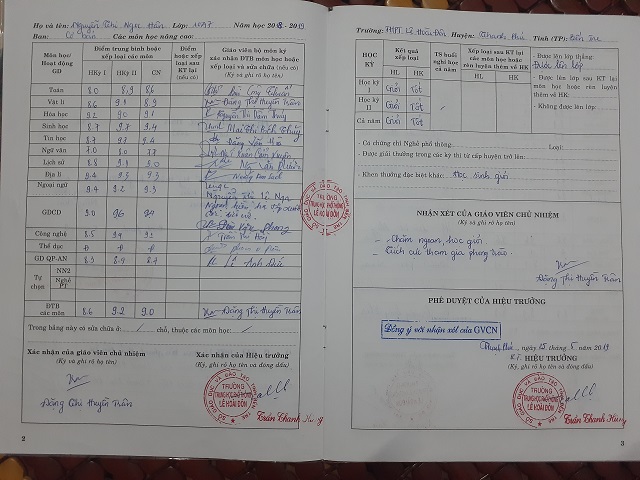 Họ và tên: Nguyễn Thị Ngọc Hân Lớp: 10A7 Năm học 2018 - 2019
Ban: Cơ bản Các môn học nâng cao:
Môn học/ Hoạt động GD
Điểm trung bình hoặc xếp loại các môn
HKỳ I HKỳ II CN
Điểm hoặc xếp loại sau KT lại (nếu có)
Giáo viên bộ môn ký xác nhận ĐTB môn học và sửa chữa (nếu có)
Toán 8.0 8.9 8.6
Vật lí 8.6 9.1 8.9 Đặng Thị Huyền Trân
Hóa học 9.2 9.0 9.1
Sinh học 8.7 9.7 9.4
Tin học 8.7
Ngữ văn 7.0 8.0 7.7
Lịch sử 8.8
Địa lí 9.4 9.5
Ngoại ngữ 9.4 9.2 9.3
GDCD 9.0 9.6 9.4
Công nghệ 8.5 9.4 9.1
Thể dục Đ Đ Đ
GD QP-AN 8.3 8.9 8.7 Lê Anh Đức
Tự chọn
NN2
Nghề PT
ĐTB các môn 8.6 9.2 9.0 Đặng Thị Huyền Trân
Trong bảng này có sửa chữa ở: / chỗ, thuộc các môn học: /
Xác nhận của giáo viên chủ nhiệm
(Ký và ghi rõ họ tên)
Đặng Thị Huyền Trân
Xác nhận của Hiệu trưởng
(Ký, ghi rõ họ tên và đóng dấu)
SỞ GIÁO DỤC VÀ ĐÀO TẠO TỈNH BẾN TRE
TRƯỜNG
TRUNG HỌC PHỔ THÔNG
LÊ HOÀI ĐÔN
Trần Thanh Hùng
2
Trường: THPT Lê Hoài Đôn Huyện: Thạnh Phú Tỉnh (TP): Bến Tre
HỌC KỲ
Kết quả xếp loại
HL HK
TS buổi nghỉ học cả năm
Xếp loại sau KT lại các môn học hoặc rèn luyện thêm về HK
HL HK
Học kỳ I Giỏi Tốt
Học kỳ II Giỏi Tốt
Cả năm Giỏi Tốt
- Được lên lớp thẳng:
Được lên lớp
- Được lên lớp sau KT lại môn học hoặc rèn luyện thêm về HK:
- Không được lên lớp:
- Có chứng chỉ Nghề phổ thông: Loại:
- Được giải thưởng trong các kỳ thi từ cấp huyện trở lên:
- Khen thưởng đặc biệt khác: Học sinh giỏi
NHẬN XÉT CỦA GIÁO VIÊN CHỦ NHIỆM
(Ký và ghi rõ họ tên)
- Chăm ngoan, học giỏi
- Tích cực tham gia phong trào.
Đặng Thị Huyền Trân
PHÊ DUYỆT CỦA HIỆU TRƯỞNG
Đồng ý với nhận xét của GVCN
Thạnh Phú, ngày 25 tháng 5 năm 2019
HIỆU TRƯỞNG
(Ký, ghi rõ họ tên và đóng dấu)
SỞ GIÁO DỤC VÀ ĐÀO TẠO TỈNH BẾN TRE
TRƯỜNG
TRUNG HỌC PHỔ THÔNG
LÊ HOÀI ĐÔN
Trần Thanh Hùng
3